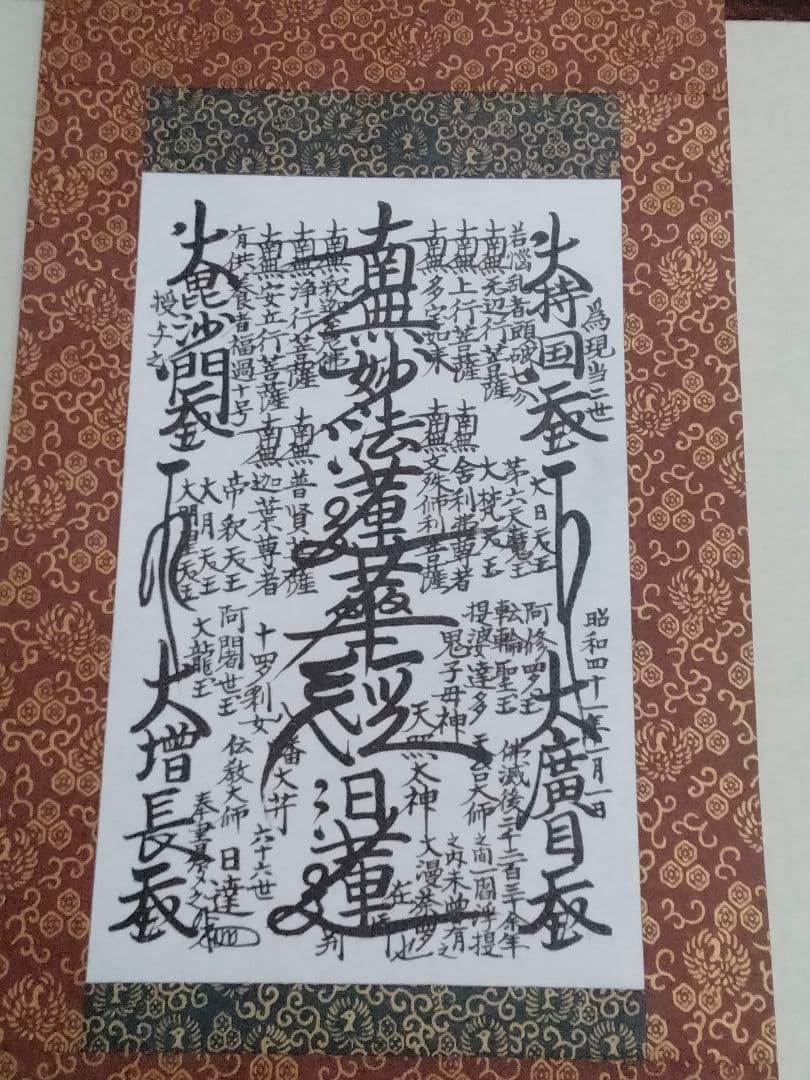 為現当二世
昭和四十一年一月一日
大持国天王
大廣目天王
若悩乱者頭破七分
南無无辺行菩薩
南無上行菩薩
南無多宝如来
南無妙法蓮華経
日蓮
在御判
南無釈迦牟尼佛
南無浄行菩薩
南無安立行菩薩
有供養者福過十号
大毘沙門天王
授与之
大日天王
第六天魔王
大梵天王
南無舎利弗尊者
南無文殊師利菩薩
南無普賢菩薩
南無迦葉尊者
帝釈天王
大月天王
大明星天王
阿修羅王
転輪聖王
提婆達多
鬼子母神
十羅刹女
阿闍世王
大龍王
天照大神
八幡大菩薩
天台大師
伝教大師
佛滅後二千二百三十余年
之間一閻浮提
之内未曽有之
大漫荼羅也
六十六世
日達
奉書写之
大増長天王